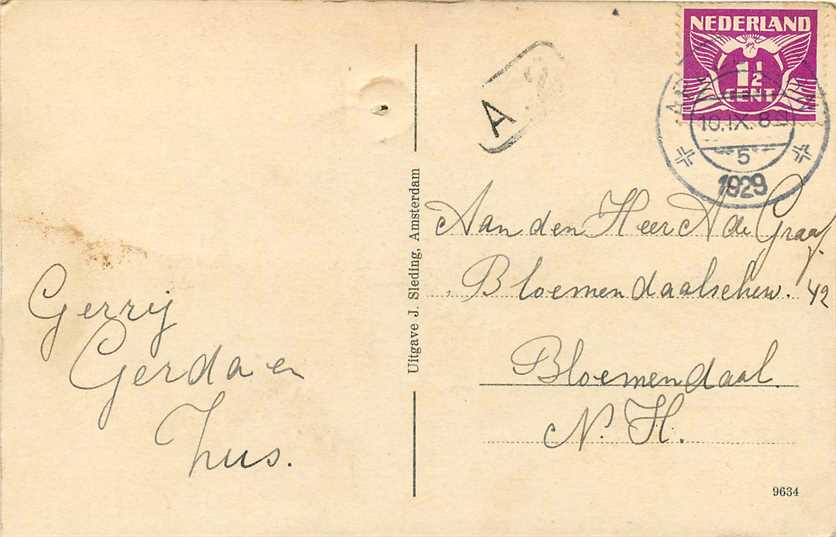 Gerrij
Gerda en
Zus.
Uitgave J. Sleding, Amsterdam
A
NEDERLAND
1½
CENT
10.IX. 8
5
1929
Aan den Heer A de Graaf.
Bloemendaalschew. 42
Bloemendaal.
N. H.
9634